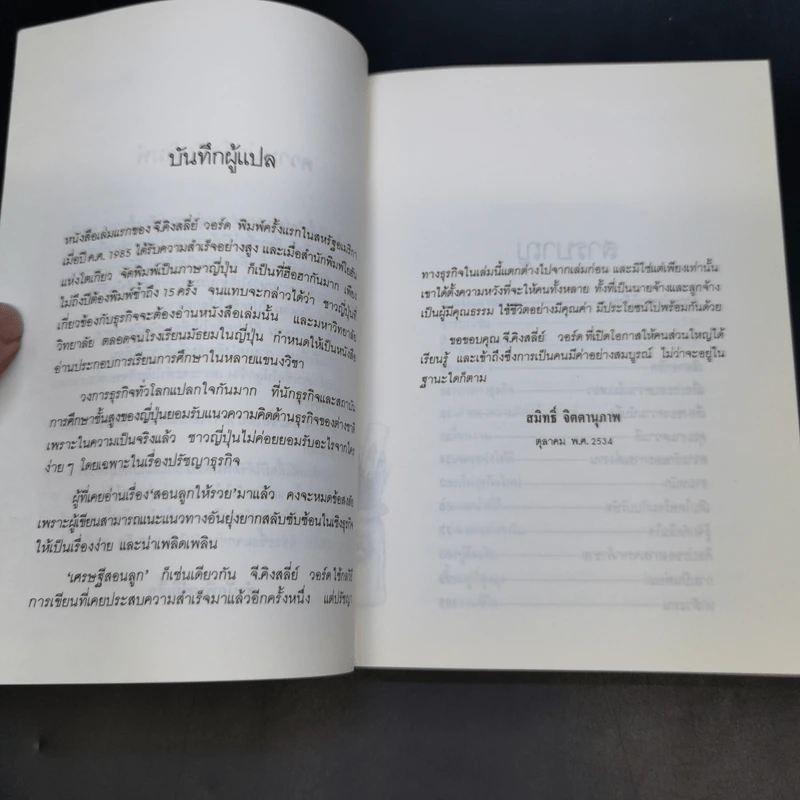 บันทึกผู้แปล
หนังสือเล่มแรกของ จี.คิงสลี่ย์ วอร์ด พิมพ์ครั้งแรกในสหรัฐอเมริกา
เมื่อปี ค.ศ. 1985 ได้รับความสำเร็จอย่างสูง และเมื่อสำนักพิมพ์
แห่งโตเกียว จัดพิมพ์เป็นภาษาญี่ปุ่น ก็เป็นที่ฮือฮากันมาก เพียง
ไม่ถึงปีต้องพิมพ์ซ้ำถึง 15 ครั้ง จนแทบจะกล่าวได้ว่า ชาวญี่ปุ่นที่
เกี่ยวข้องกับธุรกิจจะต้องอ่านหนังสือเล่มนั้น และมหาวิทยาลัย
วิทยาลัย ตลอดจนโรงเรียนมัธยมในญี่ปุ่น กำหนดให้เป็นหนังสือ
อ่านประกอบการเรียนการศึกษาในหลายแขนงวิชา
วงการธุรกิจทั่วโลกแปลกใจกันมาก ที่นักธุรกิจและสถาบัน
การศึกษาชั้นสูงของญี่ปุ่นยอมรับแนวความคิดด้านธุรกิจของต่างชาติ
เพราะในความเป็นจริงแล้ว ชาวญี่ปุ่นไม่ค่อยยอมรับอะไรจากใคร
ง่าย ๆ โดยเฉพาะในเรื่องปรัชญาธุรกิจ
ผู้ที่เคยอ่านเรื่อง‘สอนลูกให้รวย’มาแล้ว คงจะหมดข้อสงสัย
เพราะผู้เขียนสามารถแนะแนวทางอันยุ่งยากสลับซับซ้อนในเชิงธุรกิจ
ให้เป็นเรื่องง่าย และน่าเพลิดเพลิน
‘เศรษฐีสอนลูก’ ก็เช่นเดียวกัน จี.คิงสลี่ย์ วอร์ด ใช้กลวิธี
การเขียนที่เคยประสบความสำเร็จมาแล้วอีกครั้งหนึ่ง แต่ปรัชญา
ทางธุรกิจในเล่มนี้แตกต่างไปจากเล่มก่อน และมิใช่แต่เพียงเท่านั้น
เขาได้ตั้งความหวังที่จะให้คนทั้งหลาย ทั้งที่เป็นนายจ้างและลูกจ้าง
เป็นผู้มีคุณธรรม ใช้ชีวิตอย่างมีคุณค่า มีประโยชน์ไปพร้อมกันด้วย
ขอขอบคุณ จี.คิงสลี่ย์ วอร์ด ที่เปิดโอกาสให้คนส่วนใหญ่ได้
เรียนรู้ และเข้าถึงซึ่งการเป็นคนมีค่าอย่างสมบูรณ์ ไม่ว่าจะอยู่ใน
ฐานะใดก็ตาม
สมิทธิ์ จิตตานุภาพ
ตุลาคม พ.ศ. 2534